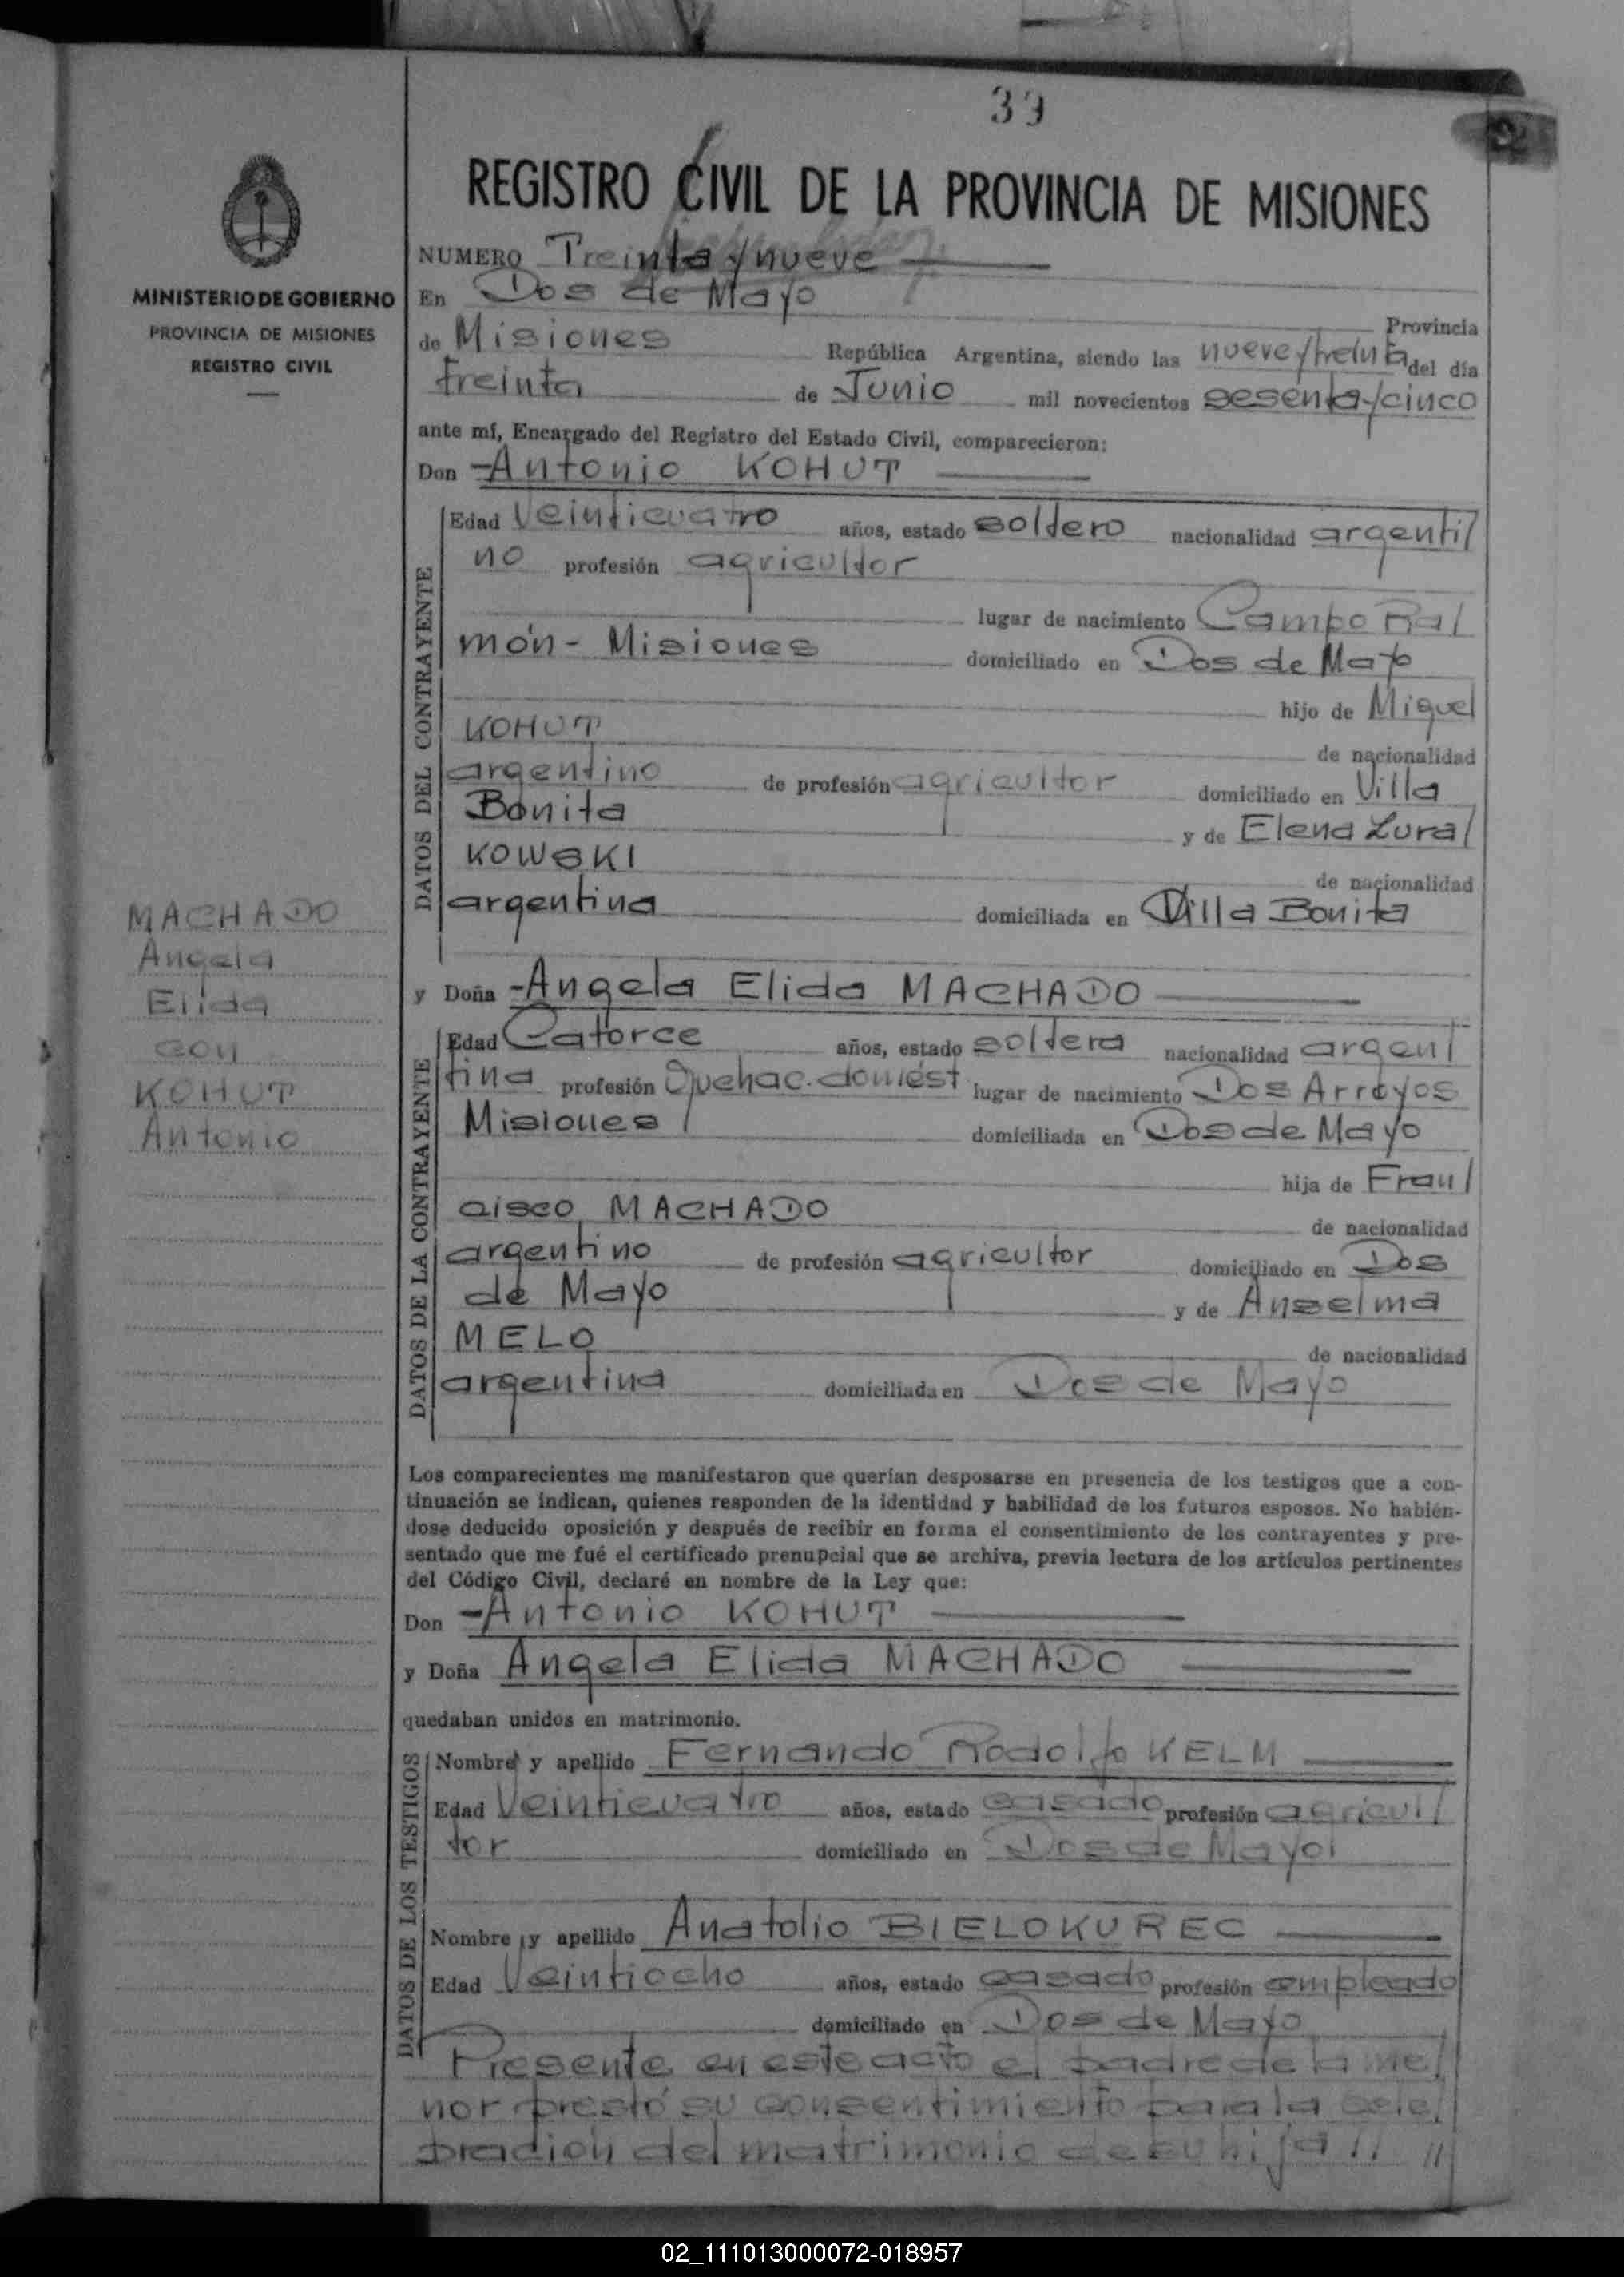 39
REGISTRO CIVIL DE LA PROVINCIA DE MISIONES
MINISTERIO DE GOBIERNO
PROVINCIA DE MISIONES
REGISTRO CIVIL
NUMERO Treinta y nueve
En Dos de Mayo
Provincia
de Misiones República Argentina, siendo las nueve y treinta del día
treinta de Junio mil novecientos sesenta y cinco
ante mí, Encargado del Registro del Estado Civil, comparecieron:
Don - Antonio KOHUT
DATOS DEL CONTRAYENTE
Edad Veinticuatro años, estado soltero nacionalidad argenti/
no profesión agricultor
lugar de nacimiento Campo Ra/
món - Misiones domiciliado en Dos de Mayo
hijo de Miguel
KOHUT de nacionalidad
argentino de profesión agricultor domiciliado en Villa
Bonita y de Elena Lura/
KOWSKI de nacionalidad
argentina domiciliada en Villa Bonita
MACHADO
Angela
Elida
con
KOHUT
Antonio
y Doña - Angela Elida MACHADO
DATOS DE LA CONTRAYENTE
Edad Catorce años, estado soltera nacionalidad argen/
tina profesión Quehac. domést lugar de nacimiento Dos Arroyos
Misiones domiciliada en Dos de Mayo
hija de Fran/
cisco MACHADO de nacionalidad
argentino de profesión agricultor domiciliado en Dos
de Mayo y de Anselma
MELO de nacionalidad
argentina domiciliada en Dos de Mayo
Los comparecientes me manifestaron que querían desposarse en presencia de los testigos que a con-
tinuación se indican, quienes responden de la identidad y habilidad de los futuros esposos. No habién-
dose deducido oposición y después de recibir en forma el consentimiento de los contrayentes y pre-
sentado que me fué el certificado prenupcial que se archiva, previa lectura de los artículos pertinentes
del Código Civil, declaré en nombre de la Ley que:
Don - Antonio KOHUT
y Doña Angela Elida MACHADO
quedaban unidos en matrimonio.
DATOS DE LOS TESTIGOS
Nombre y apellido Fernando Rodolfo KELM
Edad Veinticuatro años, estado casado profesión agricul/
tor domiciliado en Dos de Mayo
Nombre y apellido Anatolio BIELOKUREC
Edad Veintiocho años, estado casado profesión empleado
domiciliado en Dos de Mayo
Presente en este acto el padre de la me/
nor prestó su consentimiento para la cele/
bración del matrimonio de su hija // //
02_111013000072-018957